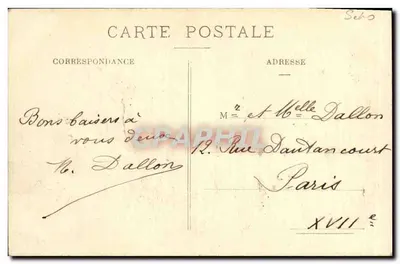 CARTE POSTALE
CORRESPONDANCE
ADRESSE
Bons baisers à
vous deux
N. Dallon
Mr et Melle Dallon
12, Rue Dautancourt
Paris
XVIIe
CPAPHIL